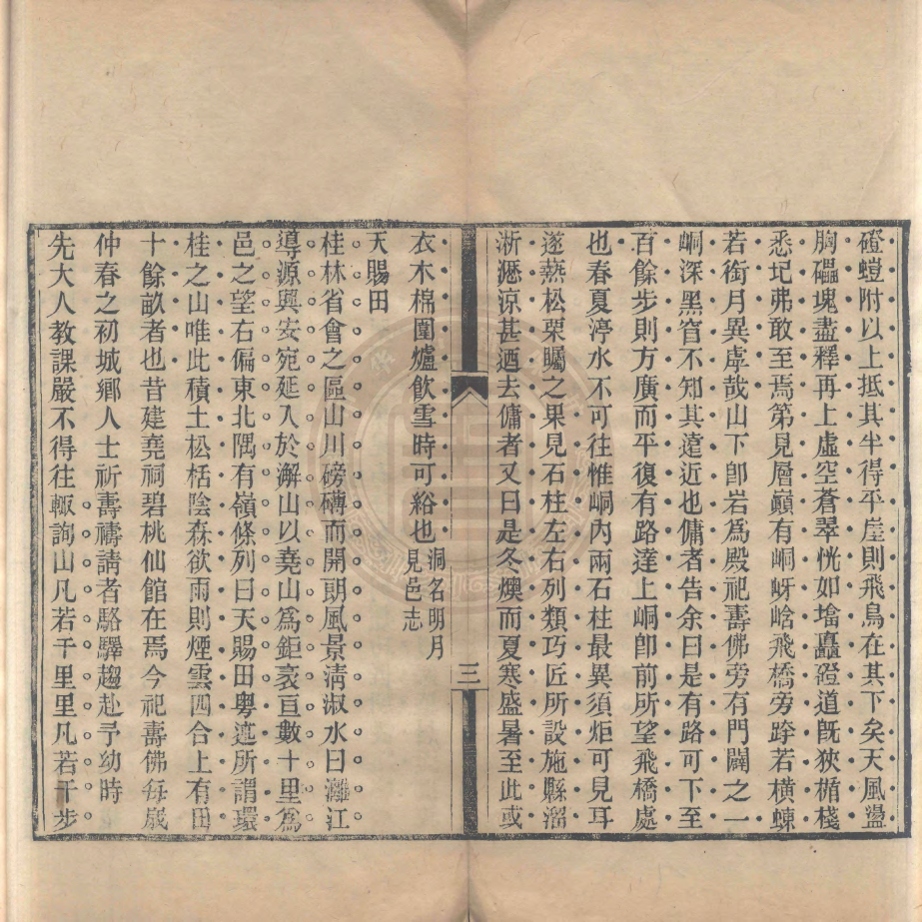 磴螘附以上抵其半得平崖則飛鳥在其下矣天風盪
胸礧塊盡釋再上虛空蒼翠恍如墖矗磴道旣狹楯棧
悉圮弗敢至焉第見層巔有峒岈峆飛橋旁跨若橫蝀
若銜月異虖哉山下卽岩爲殿祀壽佛旁有門闢之一
峒深黑窅不知其遠近也傭者告余曰是有路可下至
百餘步則方廣而平復有路達上峒卽前所望飛橋處
也春夏渟水不可往惟峒內兩石柱最異須炬可見耳
遂爇松栗矚之果見石柱左右列類巧匠所設施縣溜
淅瀝涼甚迺去傭者又曰是冬燠而夏寒盛暑至此或
三
衣木棉圍爐飮雪時可綌也洞名明月見邑志
天賜田
桂林省會之區山川磅礡而開朗風景淸淑水曰灕江
導源興安宛延入於澥山以堯山爲鉅袤亘數十里爲
邑之望右偏東北隅有嶺條列曰天賜田粵述所謂環
桂之山唯此積土松栝陰森欲雨則煙雲四合上有田
十餘畝者也昔建堯祠碧桃仙館在焉今祀壽佛每歲
仲春之初城鄉人士祈壽禱請者駱驛趨赴予幼時
先大人教課嚴不得往輙詢山凡若干里里凡若干步